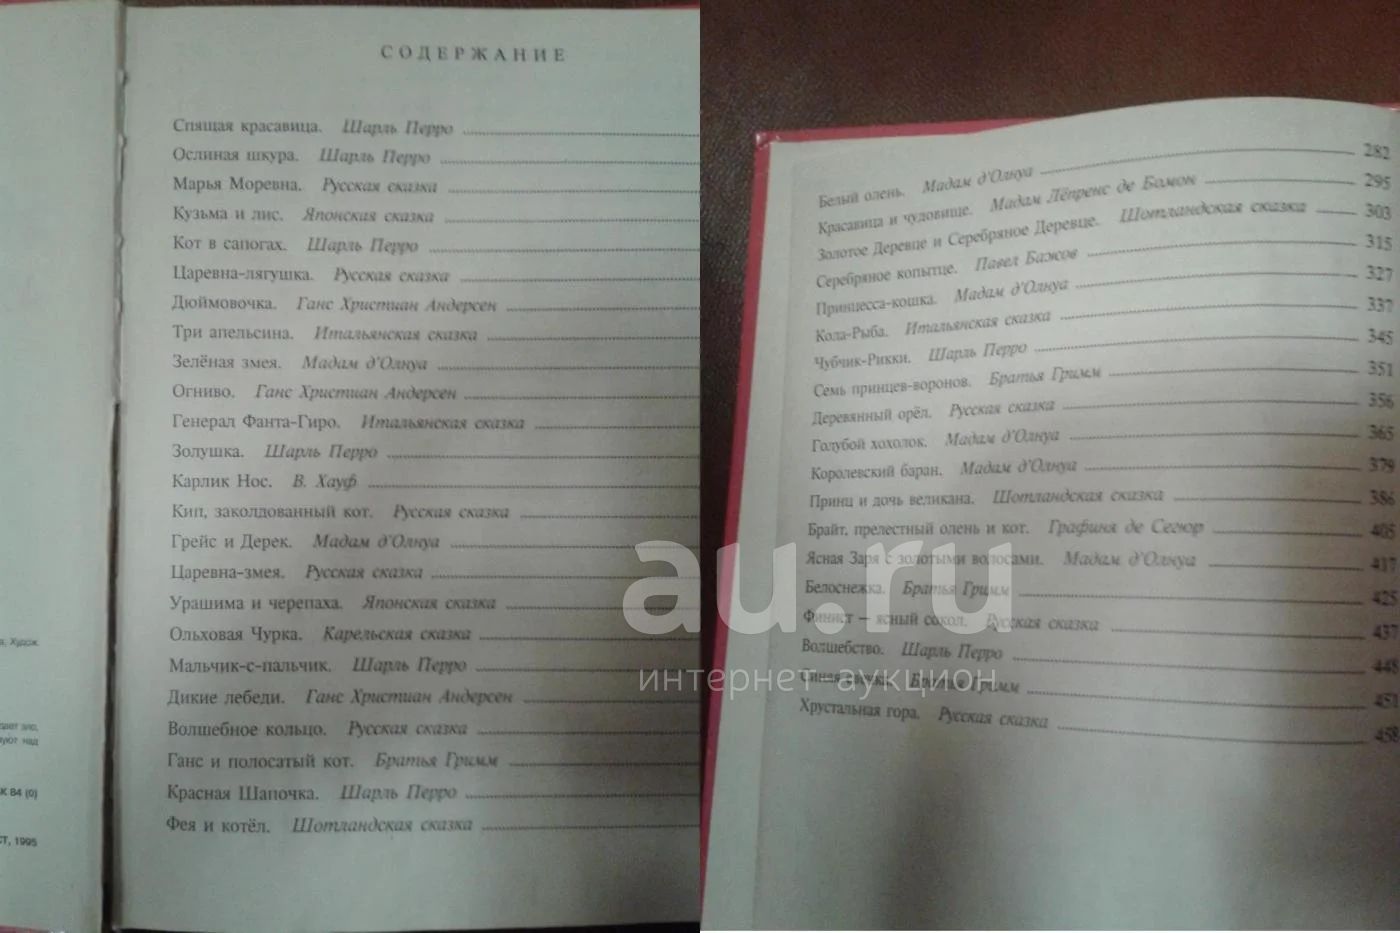 СОДЕРЖАНИЕ
Спящая красавица. Шарль Перро
Ослиная шкура. Шарль Перро
Марья Моревна. Русская сказка
Кузьма и лис. Японская сказка
Кот в сапогах. Шарль Перро
Царевна-лягушка. Русская сказка
Дюймовочка. Ганс Христиан Андерсен
Три апельсина. Итальянская сказка
Зелёная змея. Мадам д'Олнуа
Огниво. Ганс Христиан Андерсен
Генерал Фанта-Гиро. Итальянская сказка
Золушка. Шарль Перро
Карлик Нос. В. Хауф
Кип, заколдованный кот. Русская сказка
Грейс и Дерек. Мадам д'Олнуа
Царевна-змея. Русская сказка
Урашима и черепаха. Японская сказка
Ольховая Чурка. Карельская сказка
Мальчик-с-пальчик. Шарль Перро
Дикие лебеди. Ганс Христиан Андерсен
Волшебное кольцо. Русская сказка
Ганс и полосатый кот. Братья Гримм
Красная Шапочка. Шарль Перро
Фея и котёл. Шотландская сказка
а, Худож.
дает зло,
вуют над
К 84 (0)
СТ, 1995
Белый олень. Мадам д'Олнуа 282
Красавица и чудовище. Мадам Лёпренс де Бомон 295
Золотое Деревце и Серебряное Деревце. Шотландская сказка 303
Серебряное копытце. Павел Бажов 315
Принцесса-кошка. Мадам д'Олнуа 327
Кола-Рыба. Итальянская сказка 337
Чубчик-Рикки. Шарль Перро 345
Семь принцев-воронов. Братья Гримм 351
Деревянный орёл. Русская сказка 356
Голубой хохолок. Мадам д'Олнуа 365
Королевский баран. Мадам д'Олнуа 379
Принц и дочь великана. Шотландская сказка 386
Брайт, прелестный олень и кот. Графиня де Сегюр 405
Ясная Заря с золотыми волосами. Мадам д'Олнуа 417
Белоснежка. Братья Гримм 425
Финист — ясный сокол. Русская сказка 437
Волшебство. Шарль Перро 448
Синая свечка. Братья Гримм 451
Хрустальная гора. Русская сказка 458
au.ru
интернет-аукцион